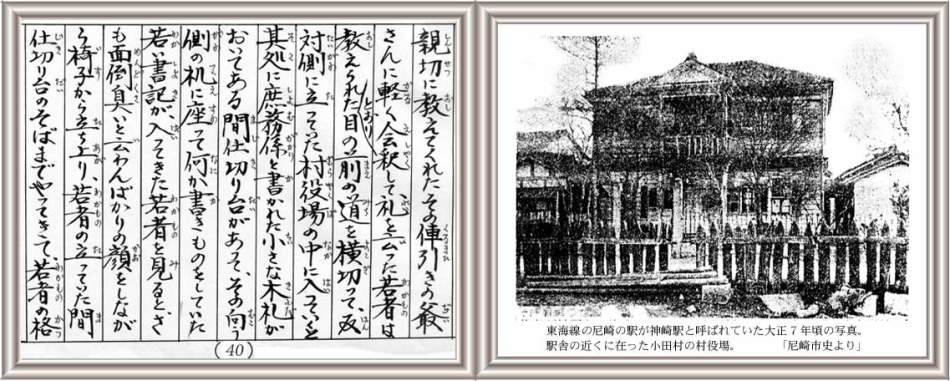 親切に教えてくれたその俥引きの爺
さんに軽く会釈して礼を云った若者は
教えられたとおり目の前の道を横切って、反
対側に立っていた村役場の中に入っていくと
其処に庶務係と書かれた小さな木札が
おいてある間仕切り台があって、その向う
側の机に座って何か書きものをしていた
若い書記が、入ってきた若者を見ると、さ
も面倒臭いと云わんばかりの顔をしなが
ら椅子から立ち上り、若者の立っていた間
仕切り台のそばまでやってきて、若者の格
(40)
東海線の尼崎の駅が神崎駅と呼ばれていた大正7年頃の写真。
駅舎の近くに在った小田村の村役場。　「尼崎市史より」